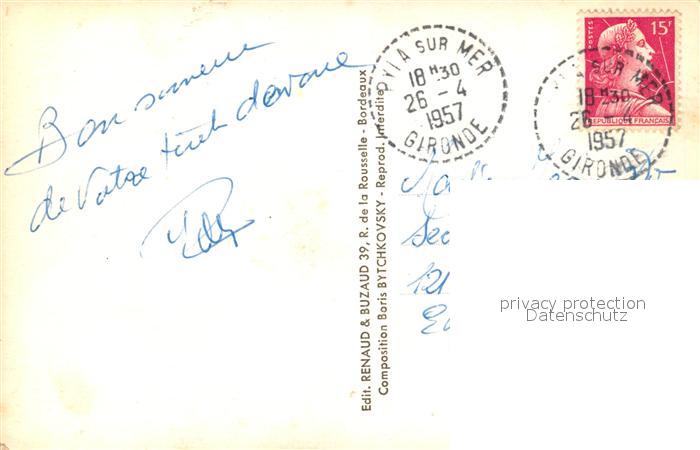 Bon souvenir
de Votre tout dévoué
Edit. RENAUD & BUZAUD 39, R. de la Rousselle - Bordeaux
Composition Boris BYTCHKOVSKY - Reprod. Interdite
SUR MER
18 H 30
26 - 4
1957
GIRONDE
POSTES
15F
REPUBLIQUE FRANÇAISE
A SUR MER
18 H 30
26 4
1957
GIRONDE
121
privacy protection
Datenschutz